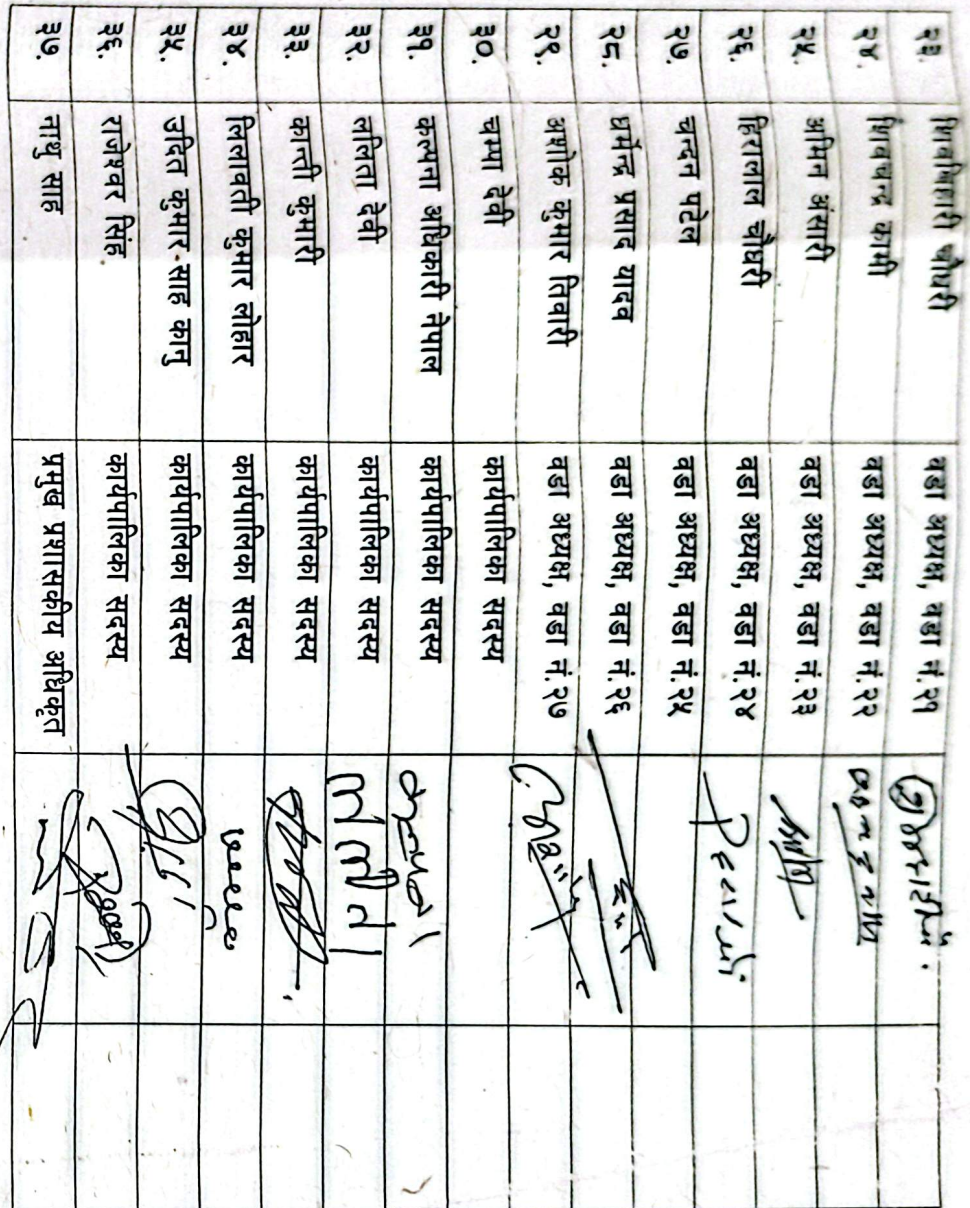 २३. शिवविहारी चौधरी वडा अध्यक्ष, वडा नं.२१
२४. शिवचन्द्र कामी वडा अध्यक्ष, वडा नं.२२
२५. अमिन अंसारी वडा अध्यक्ष, वडा नं.२३
२६. हिरालाल चौधरी वडा अध्यक्ष, वडा नं.२४
२७. चन्दन पटेल वडा अध्यक्ष, वडा नं.२५
२८. धर्मेन्द्र प्रसाद यादव वडा अध्यक्ष, वडा नं.२६
२९. अशोक कुमार तिवारी वडा अध्यक्ष, वडा नं.२७
३०. चम्पा देवी कार्यपालिका सदस्य
३१. कल्पना अधिकारी नेपाल कार्यपालिका सदस्य
३२. ललिता देवी कार्यपालिका सदस्य
३३. कान्ती कुमारी कार्यपालिका सदस्य
३४. लिलावती कुमार लोहार कार्यपालिका सदस्य
३५. उदित कुमार साह कानु कार्यपालिका सदस्य
३६. राजेश्वर सिंह कार्यपालिका सदस्य
३७. नाथु साह प्रमुख प्रशासकीय अधिकृत